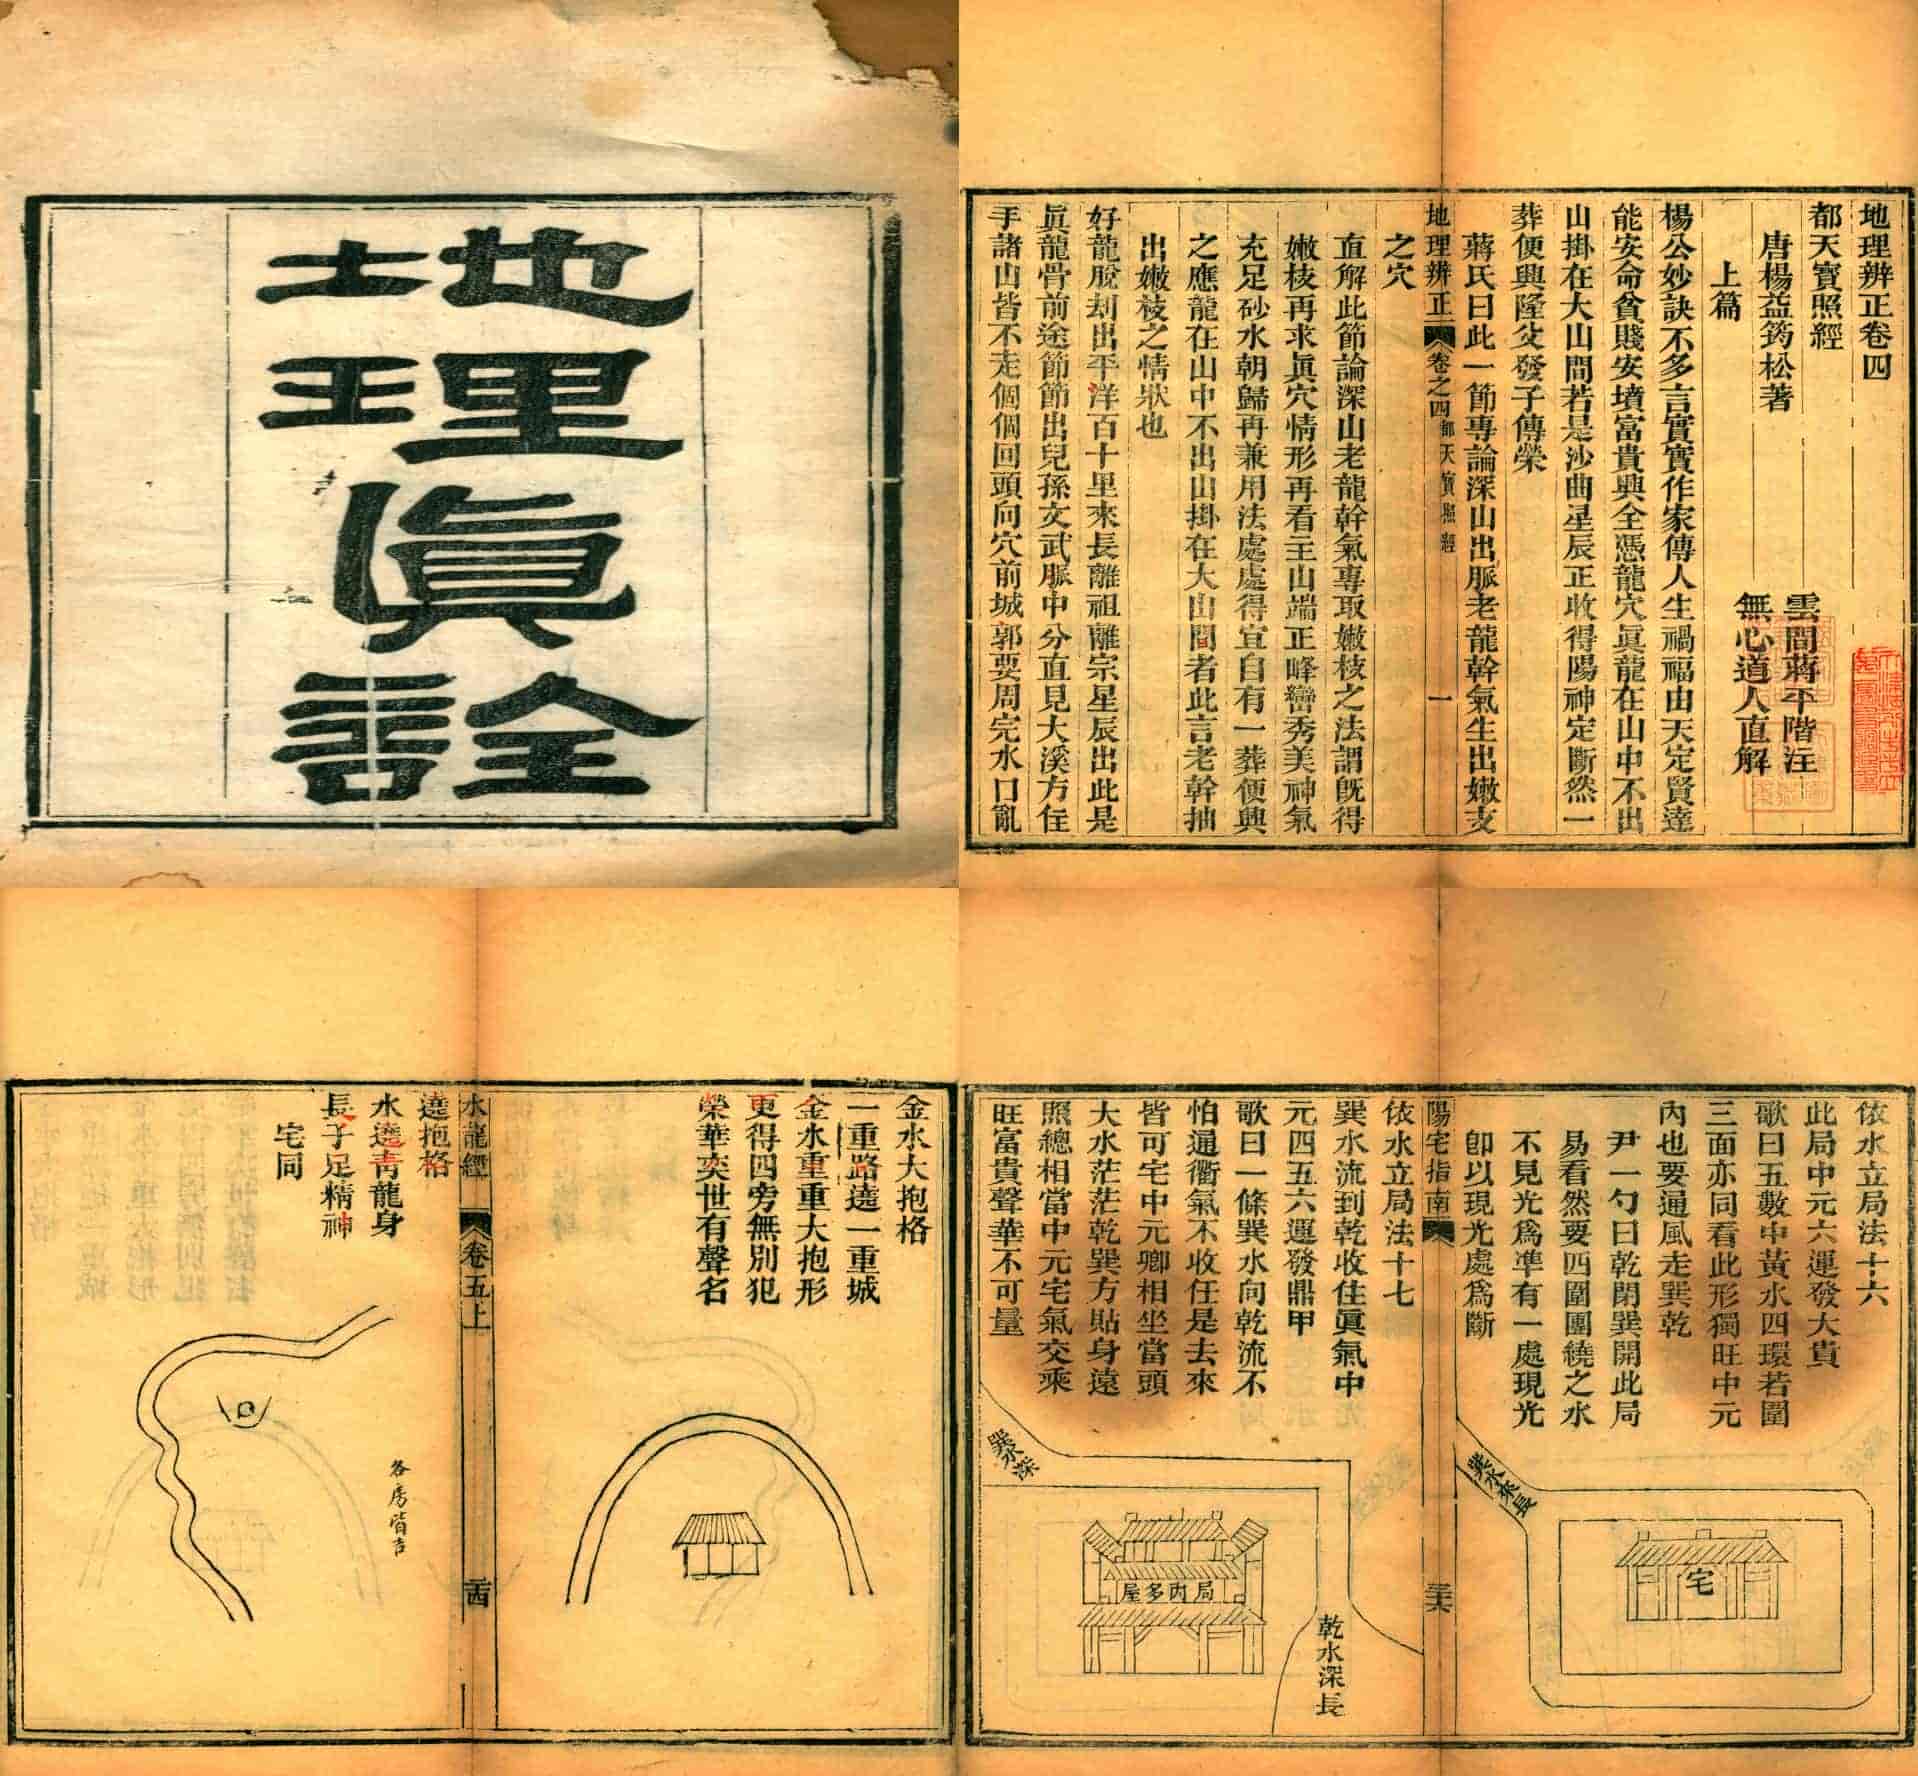 地理眞詮
地理辨正卷四
都天寶照經
唐楊益筠松著
雲間蔣平階注
無心道人直解
上篇
楊公妙訣不多言實實作家傳人生禍福由天定賢達
能安命貧賤安墳富貴興全憑龍穴眞龍在山中不出
山掛在大山間若是沙曲星辰正收得陽神定斷然一
葬便興隆父發子傳榮
蔣氏曰此一節專論深山出脈老龍幹氣生出嫩支
地理辨正
卷之四都天寶照經
一
之穴
直解此節論深山老龍幹氣專取嫩枝之法謂旣得
嫩枝再求眞穴情形再看主山端正峰巒秀美神氣
充足砂水朝歸再兼用法處處得宜自有一葬便興
之應龍在山中不出山掛在大山間者此言老幹抽
出嫩枝之情狀也
好龍脫刧出平洋百十里來長離祖離宗星辰出此是
眞龍骨前途節節出兒孫文武脈中分直見大溪方住
手諸山皆不走個個回頭向穴前城郭要周完水口亂
金水大抱格
一重路遶一重城
金水重重大抱形
更得四旁無別犯
榮華奕世有聲名
水龍經
卷五上
十四
遶抱格
水遶靑龍身
長子足精神
宅同
各房皆吉
依水立局法十六
此局中元六運發大貴
歌曰五數中黃水四環若圍
三面亦同看此形獨旺中元
內也要通風走巽乾
尹一勺曰乾閉巽開此局
易看然要四圍團繞之水
不見光爲準有一處現光
卽以現光處爲斷
巽水來長
宅
陽宅指南
三六
依水立局法十七
巽水流到乾收住眞氣中
元四五六運發鼎甲
歌曰一條巽水向乾流不
怕通衢氣不收任是去來
皆可宅中元卿相坐當頭
大水茫茫乾巽方貼身遠
照總相當中元宅氣交乘
旺富貴聲華不可量
巽水深
局內多屋
乾水深長